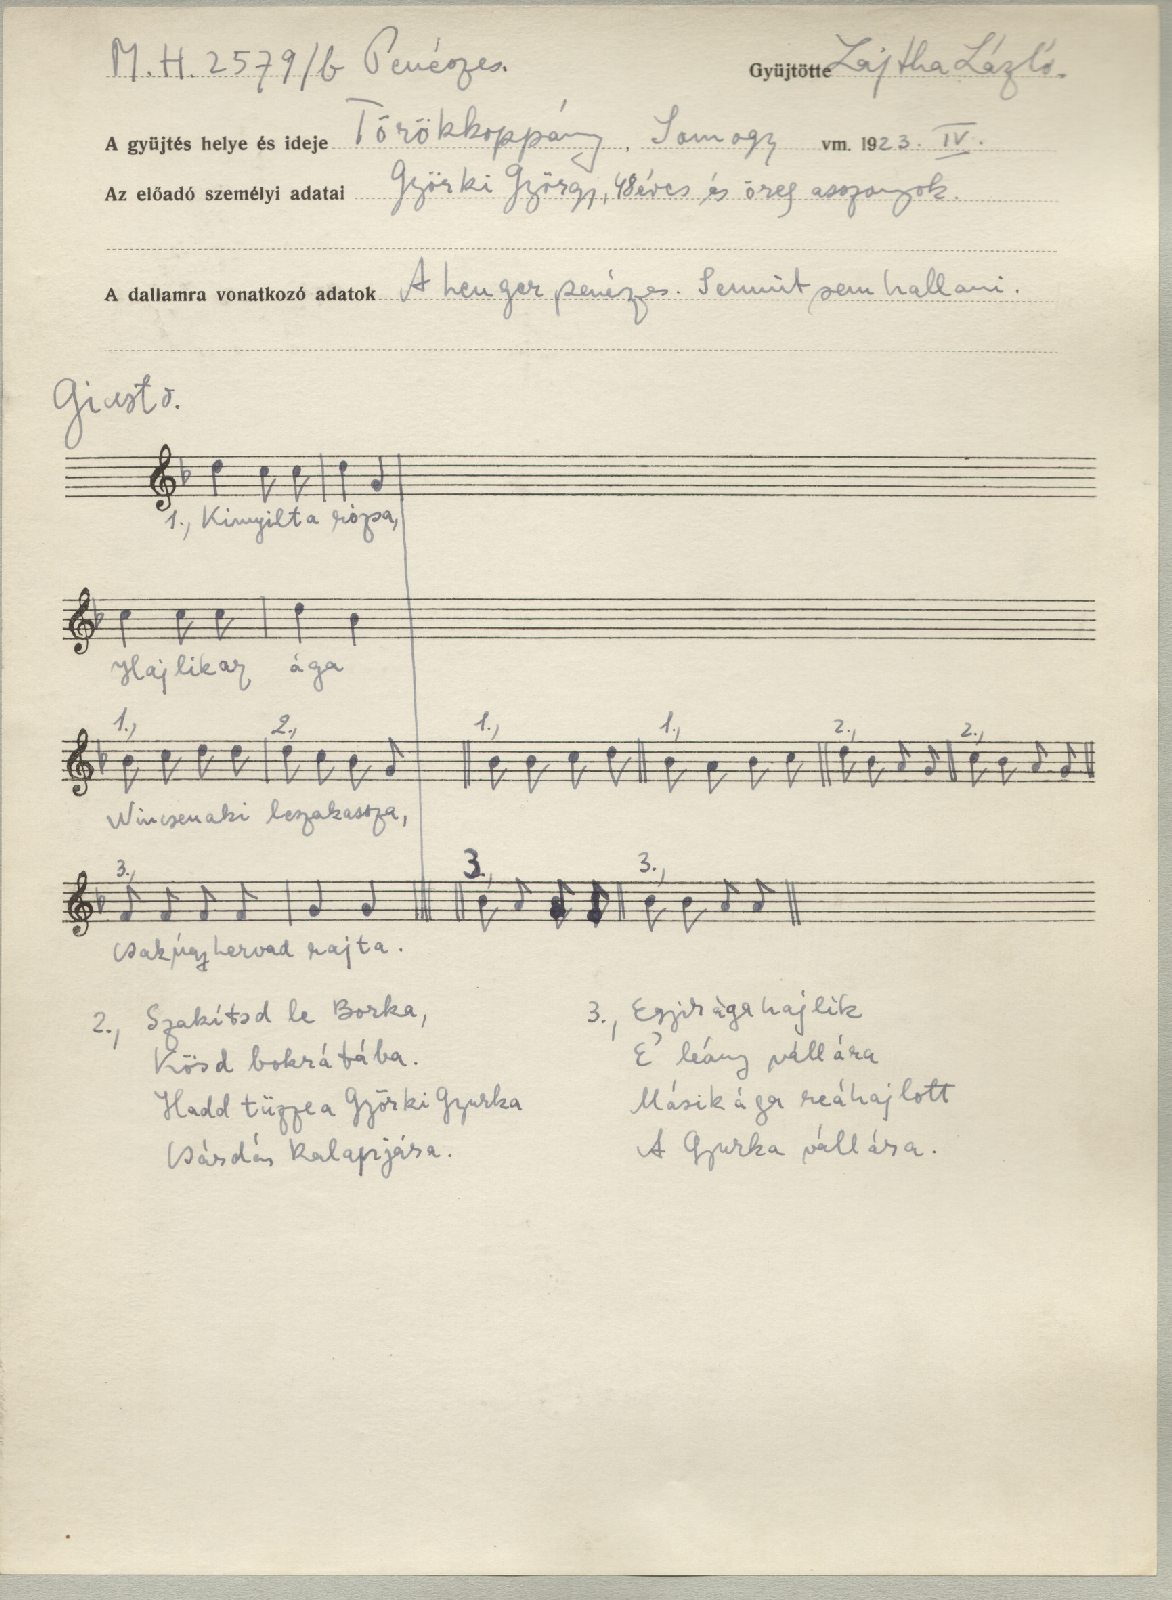 M.H. 2579/b Penészes. Gyüjtötte Lajtha László.
A gyüjtés helye és ideje Törökkoppány, Somogy vm. 1923. IV.
Az előadó személyi adatai Györki György, 48 éves és öreg asszonyok.
A dallamra vonatkozó adatok A henger penészes. Semmit sem hallani.
Giusto.
1., Kinyilt a rózsa,
Hajlik az ága
1., 2., 1., 1., 2., 2.,
Nincsen aki leszakassza,
3., 3., 3.,
Csak úgy hervad rajta.
2., Szakítsd le Borka,
Kösd bokrátába.
Hadd tüzze a Györki Gyurka
Csárdás kalapjára.
3., Egyik ága hajlik
E' leány vállára
Másik ága reáhajlott
A Gyurka vállára.